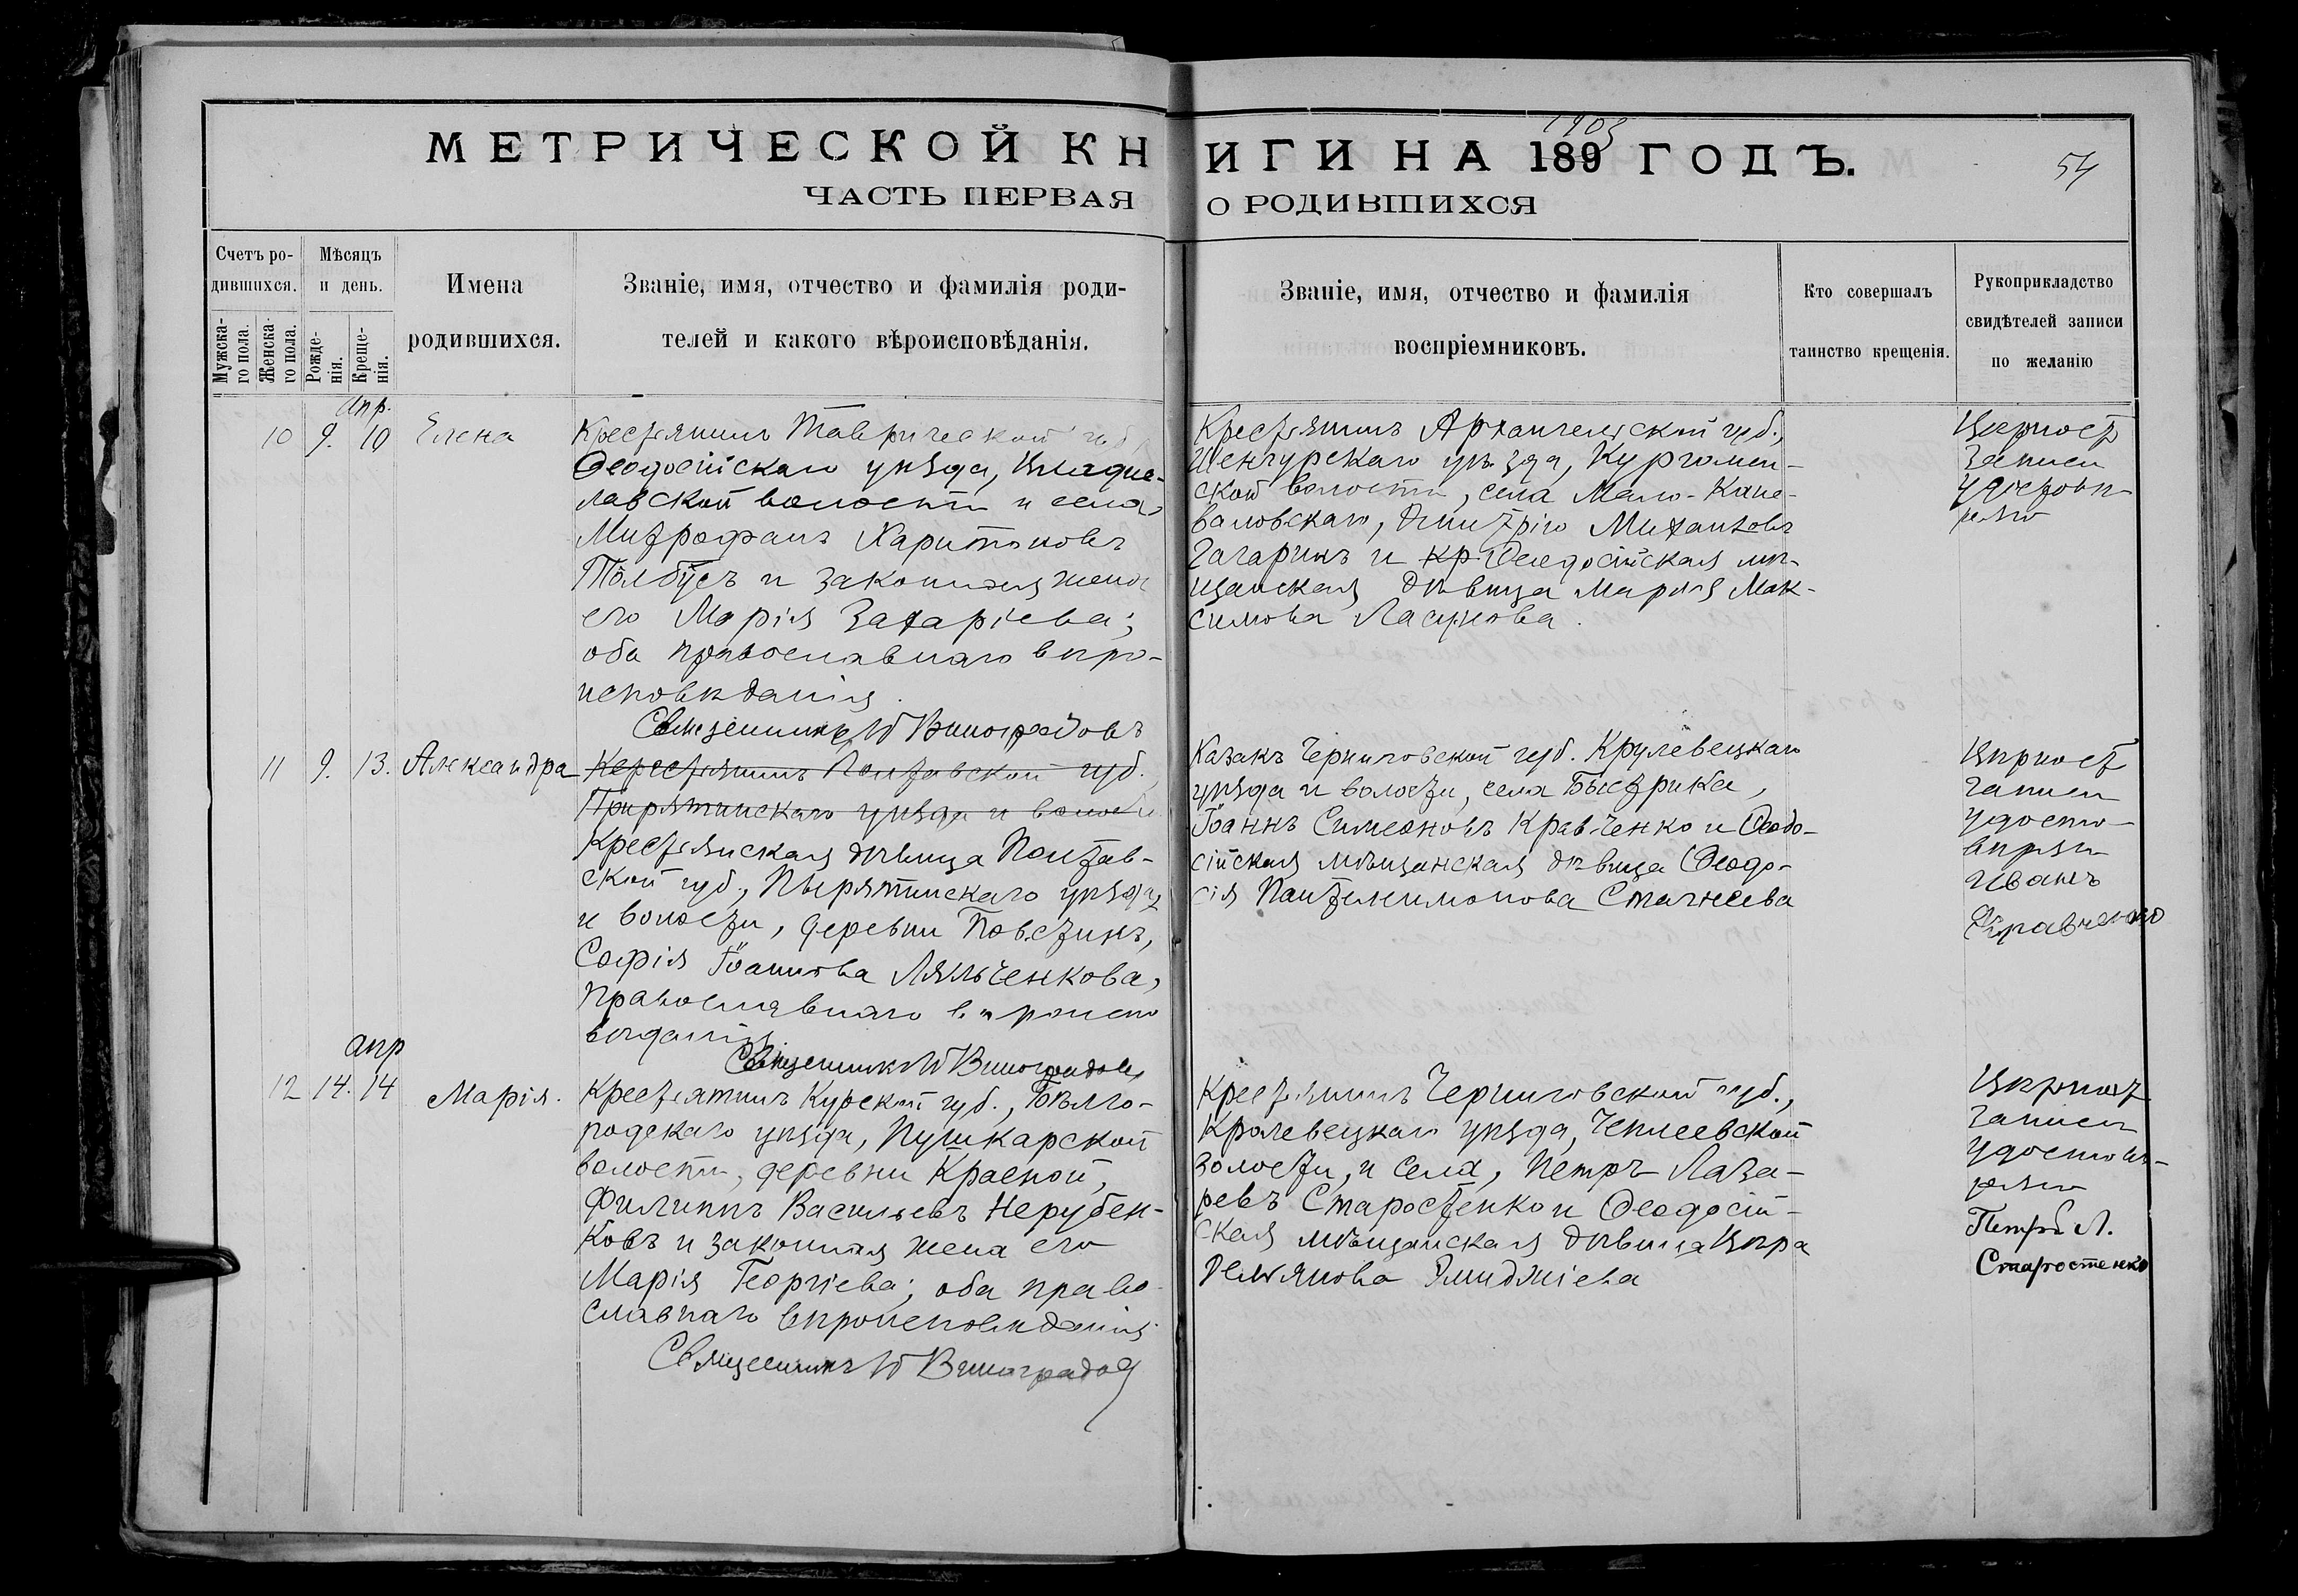 МЕТРИЧЕСКОЙ КНИГИ НА 189 ГОДЪ.
1903
54
ЧАСТЬ ПЕРВАЯ О РОДИВШИХСЯ
Счетъ родившихся.
Мужскаго пола.
Женскаго пола.
Мѣсяцъ и день.
Рожденія.
Крещенія.
Имена родившихся.
Званіе, имя, отчество и фамилія роди-
телей и какого вѣроисповѣданія.
Званіе, имя, отчество и фамилія
воспріемниковъ.
Кто совершалъ
таинство крещенія.
Рукоприкладство
свидѣтелей записи
по желанію
апр.
10 9. 10 Елена
Крестьянинъ Таврической губ.,
Ѳеодосійскаго уѣзда, Владис-
лавской волости и села,
Митрофанъ Харитоновъ
и законная жена
его Марія Захаріева;
оба православнаго вѣро-
исповѣданія.
Священникъ Виноградовъ
Крестьянинъ Архангельской губ.,
Шенкурскаго уѣзда, Кургомен-
ской волости, села
Димитрій Михаиловъ
Гагаринъ и кр. Ѳеодосійская мѣ-
щанская дѣвица Марія Мак-
симова
Вѣрность
записи
удостовѣ-
ряю
11 9. 13. Александра
Крестьянинъ Полтавской губ.
Пирятинскаго уѣзда и волости
Крестьянская дѣвица Полтав-
ской губ., Пырятинскаго уѣзда
и волости, деревни Повстинъ,
Софія Іоаннова Ляльченкова,
православнаго вѣроиспо
вѣданія.
Священникъ Виноградовъ
Казакъ Черниговской губ. Крулевецкаго
уѣзда и волости, села Быстрика,
Іоаннъ Симеоновъ Кравченко и Ѳеодо-
сійская мѣщанская дѣвица Ѳеодо-
сія Пантелеимонова
Вѣрность
записи
удосто-
вѣряю
Иванъ
Кравченко
апр
12 14. 14 Марія.
Крестьянинъ Курской губ., Бѣлго-
родскаго уѣзда, Пушкарской
волости, деревни Красной,
Филиппъ Васильевъ Нерубен-
ковъ и законная жена его
Марія Георгіева; оба право-
славнаго вѣроисповѣданія
Священникъ Виноградовъ
Крестьянинъ Черниговской губ.,
Кролевецкаго уѣзда,
волости, и села, Петръ Лаза-
ревъ Старостенко и Ѳеодосій-
ская мѣщанская дѣвица Вѣра
Демьянова
Вѣрность
записи
удостовѣ-
ряю
Петръ Л.
Старостенко